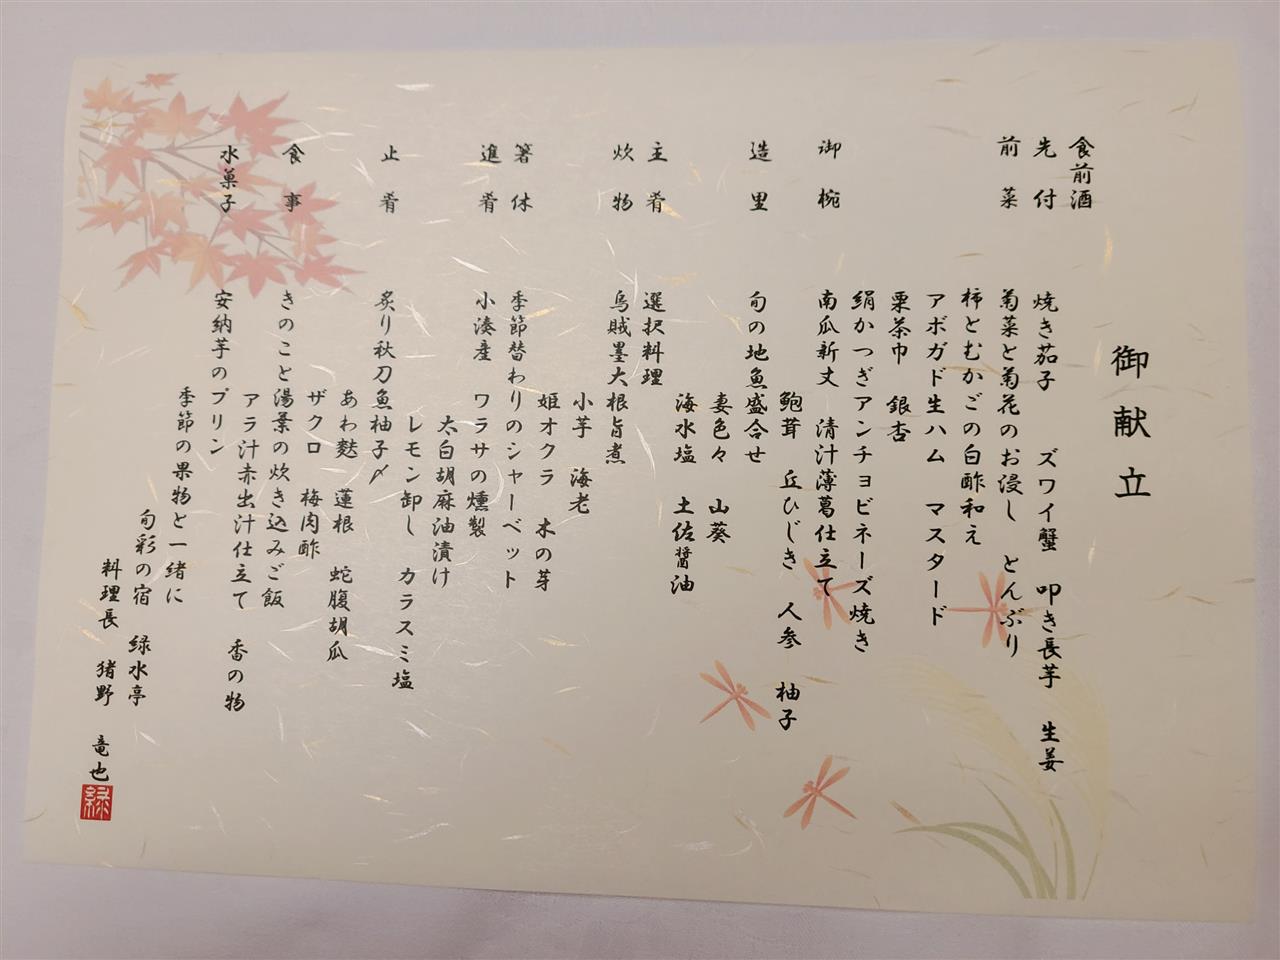 御献立
食前酒
先付　焼き茄子　ズワイ蟹　叩き長芋　生姜
前菜　菊菜と菊花のお浸し　とんぶり
柿とむかごの白酢和え
アボガド生ハム　マスタード
栗茶巾　銀杏
絹かつぎアンチョビネーズ焼き
御椀　南瓜新丈　清汁薄葛仕立て
鮑茸　丘ひじき　人参　柚子
造里　旬の地魚盛合せ
妻色々　山葵
海水塩　土佐醤油
主肴　選択料理
炊物　烏賊墨大根旨煮
小芋　海老
姫オクラ　木の芽
箸休　季節替わりのシャーベット
進肴　小湊産　ワラサの燻製
太白胡麻油漬け
レモン卸し　カラスミ塩
止肴　炙り秋刀魚柚子〆
あわ麩　蓮根　蛇腹胡瓜
ザクロ　梅肉酢
食事　きのこと湯葉の炊き込みご飯
アラ汁赤出汁仕立て　香の物
水菓子　安納芋のプリン
季節の果物と一緒に
旬彩の宿　緑水亭
料理長　猪野　竜也
緑